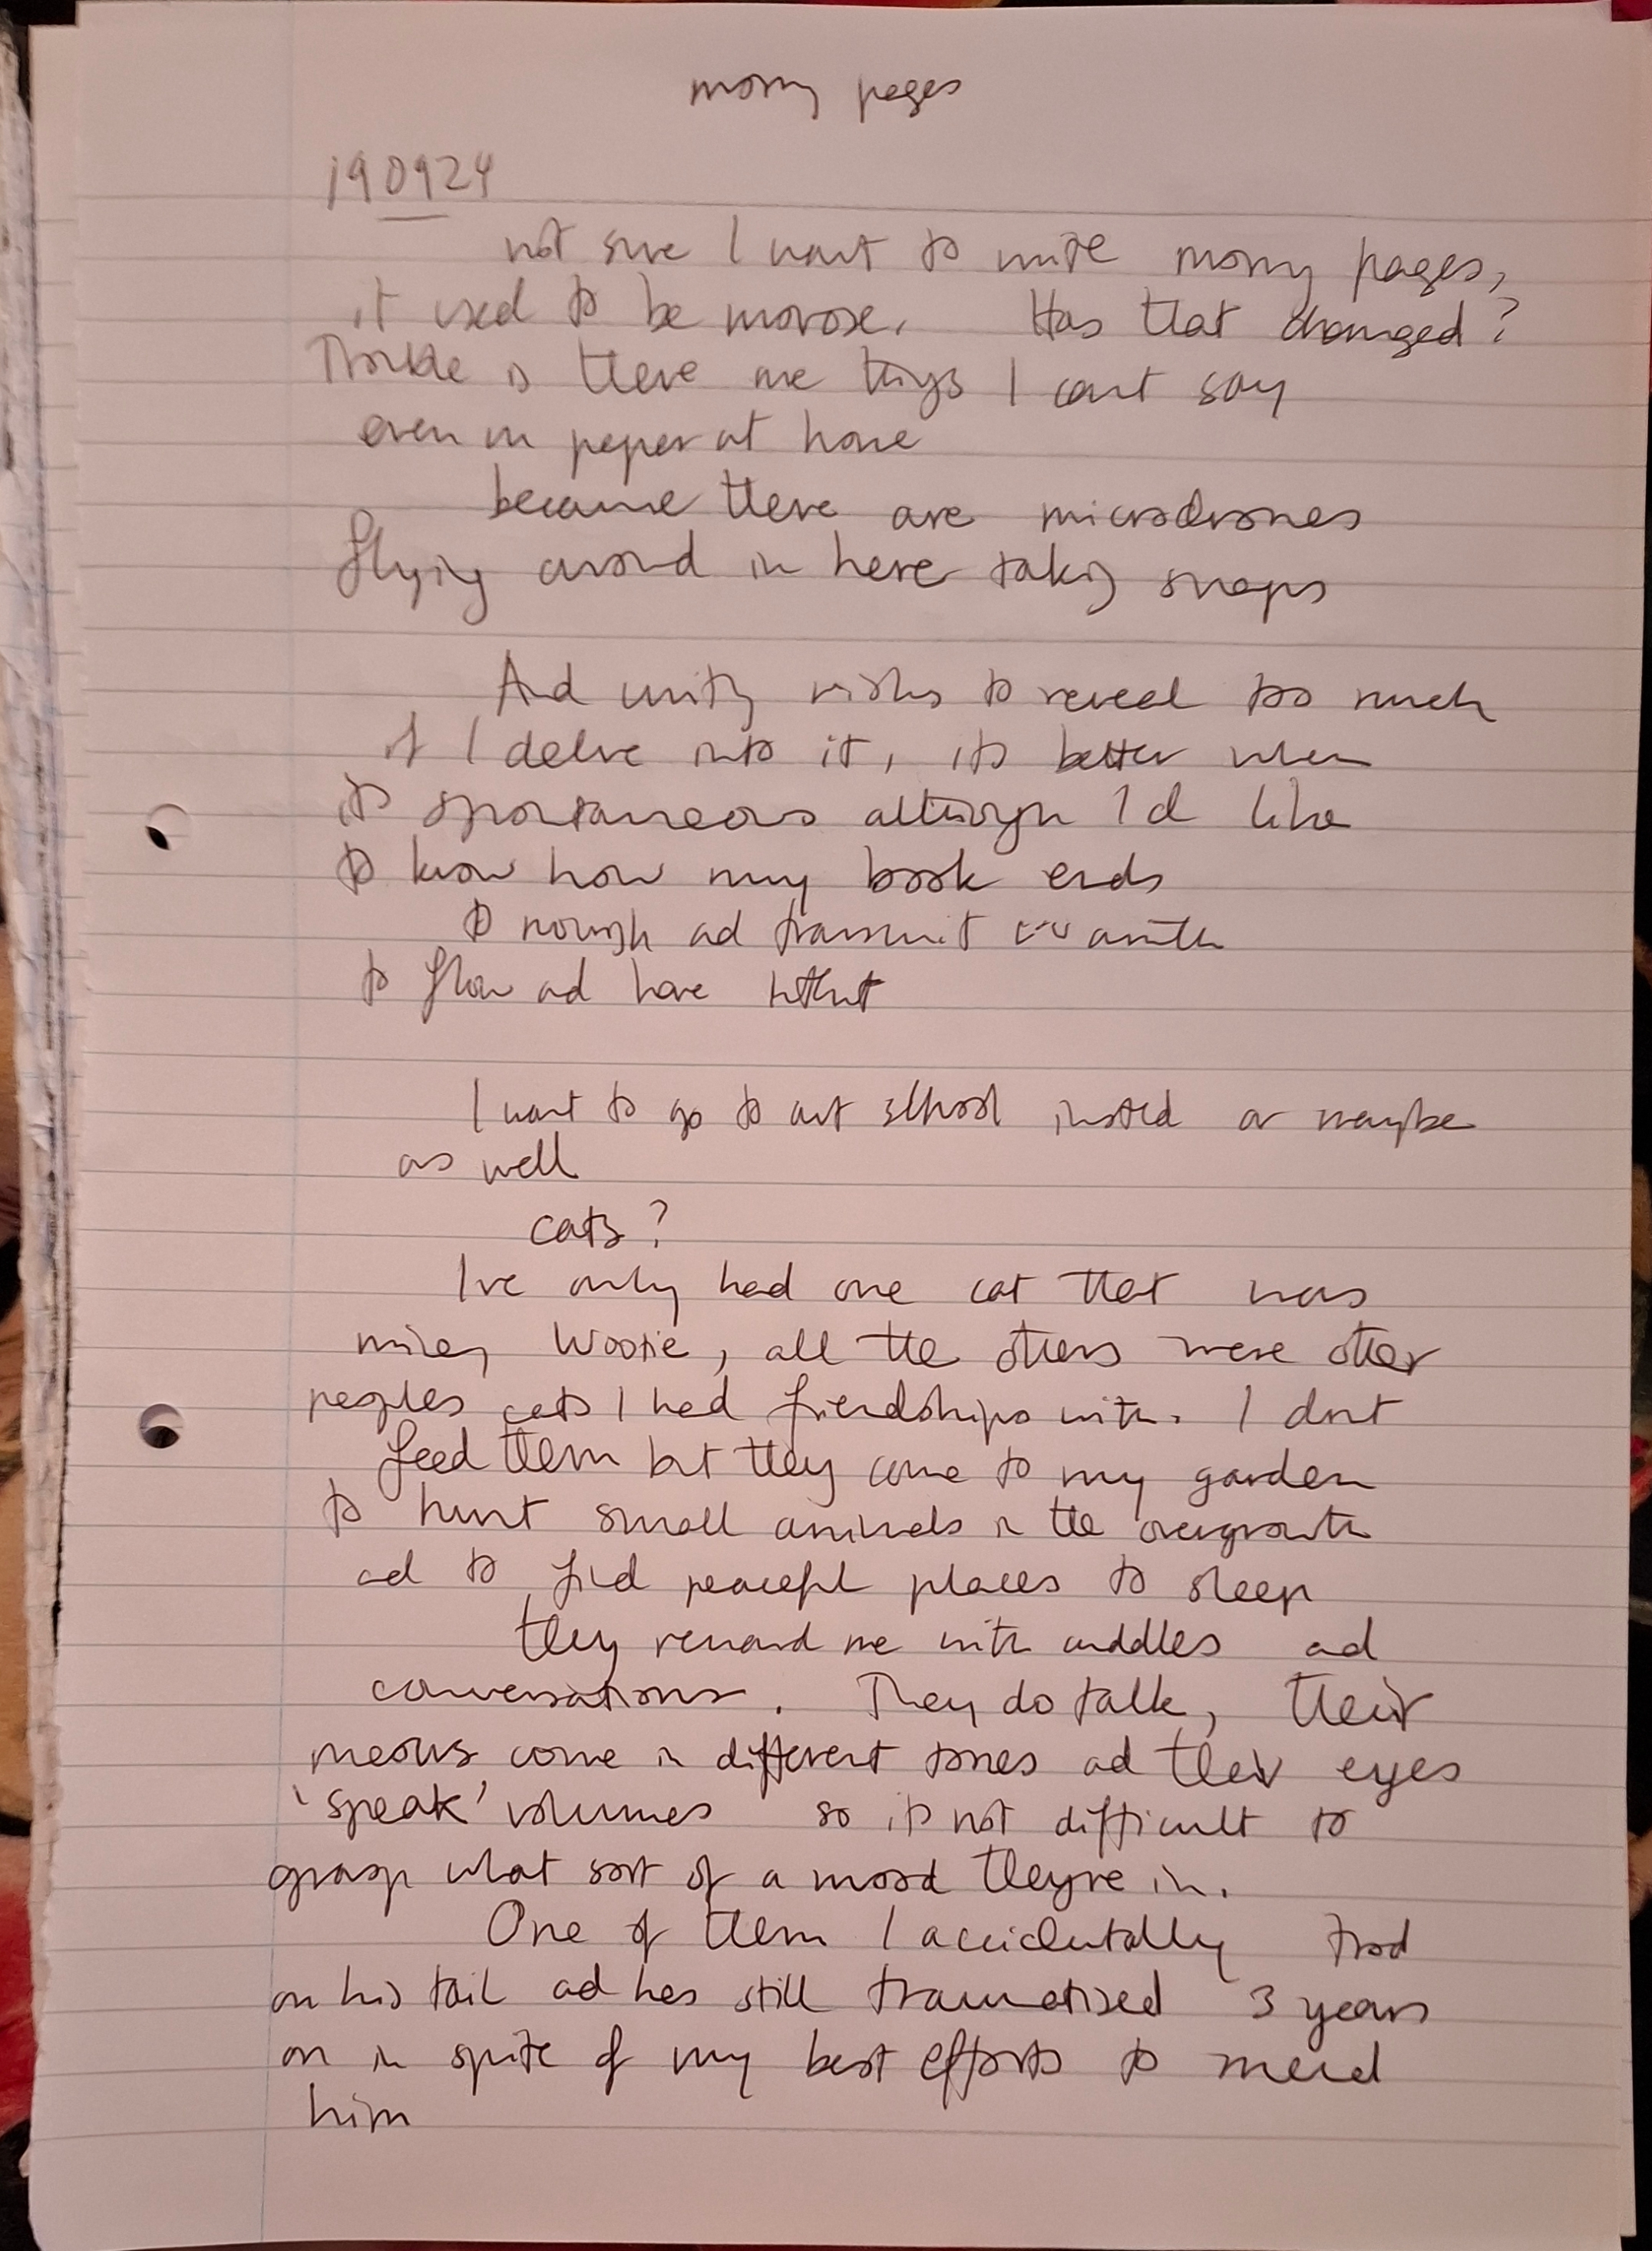 morning pages
190924
not sure I want to write morning pages,
it used to be morose. Has that changed?
Trouble is there are things I cant say
even on paper at home
because there are microdrones
flying around in here taking snaps
And writing risks to reveal too much
if I delve into it, its better when
its spontaneous although I'd like
to know how my book ends
to and transmit
to flow and have
I want to go to art school instead or maybe
as well
cats?
Ive only had one cat that was
mine, all the others were other
peoples cats I had friendships with. I dont
feed them but they come to my garden
to hunt small animals in the overgrowth
and to find peaceful places to sleep
they reward me with cuddles and
conversations. They do talk, their
meows come in different tones and their eyes
'speak' volumes so its not difficult to
grasp what sort of a mood theyre in.
One of them I accidentally trod
on his tail and hes still traumatised 3 years
on in spite of my best efforts to mend
him